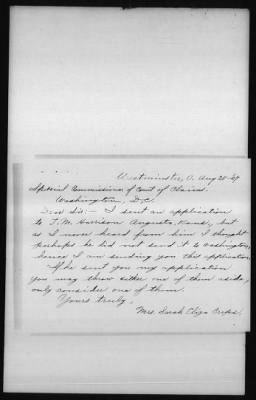 Westminster, O. Aug 28-07
Special Commissioner of Court of Claims.
Washington, D.C.
Dear Sir:- I sent an application
to T. M. Harrison Augusta, Kans., but
as I never heard from him I thought
perhaps he did not send it to Washington,
hence I am sending you this application
If he sent you my application
you may throw either one of them aside,
only consider one of them.
Yours truly,
Mrs. Sarah Eliza